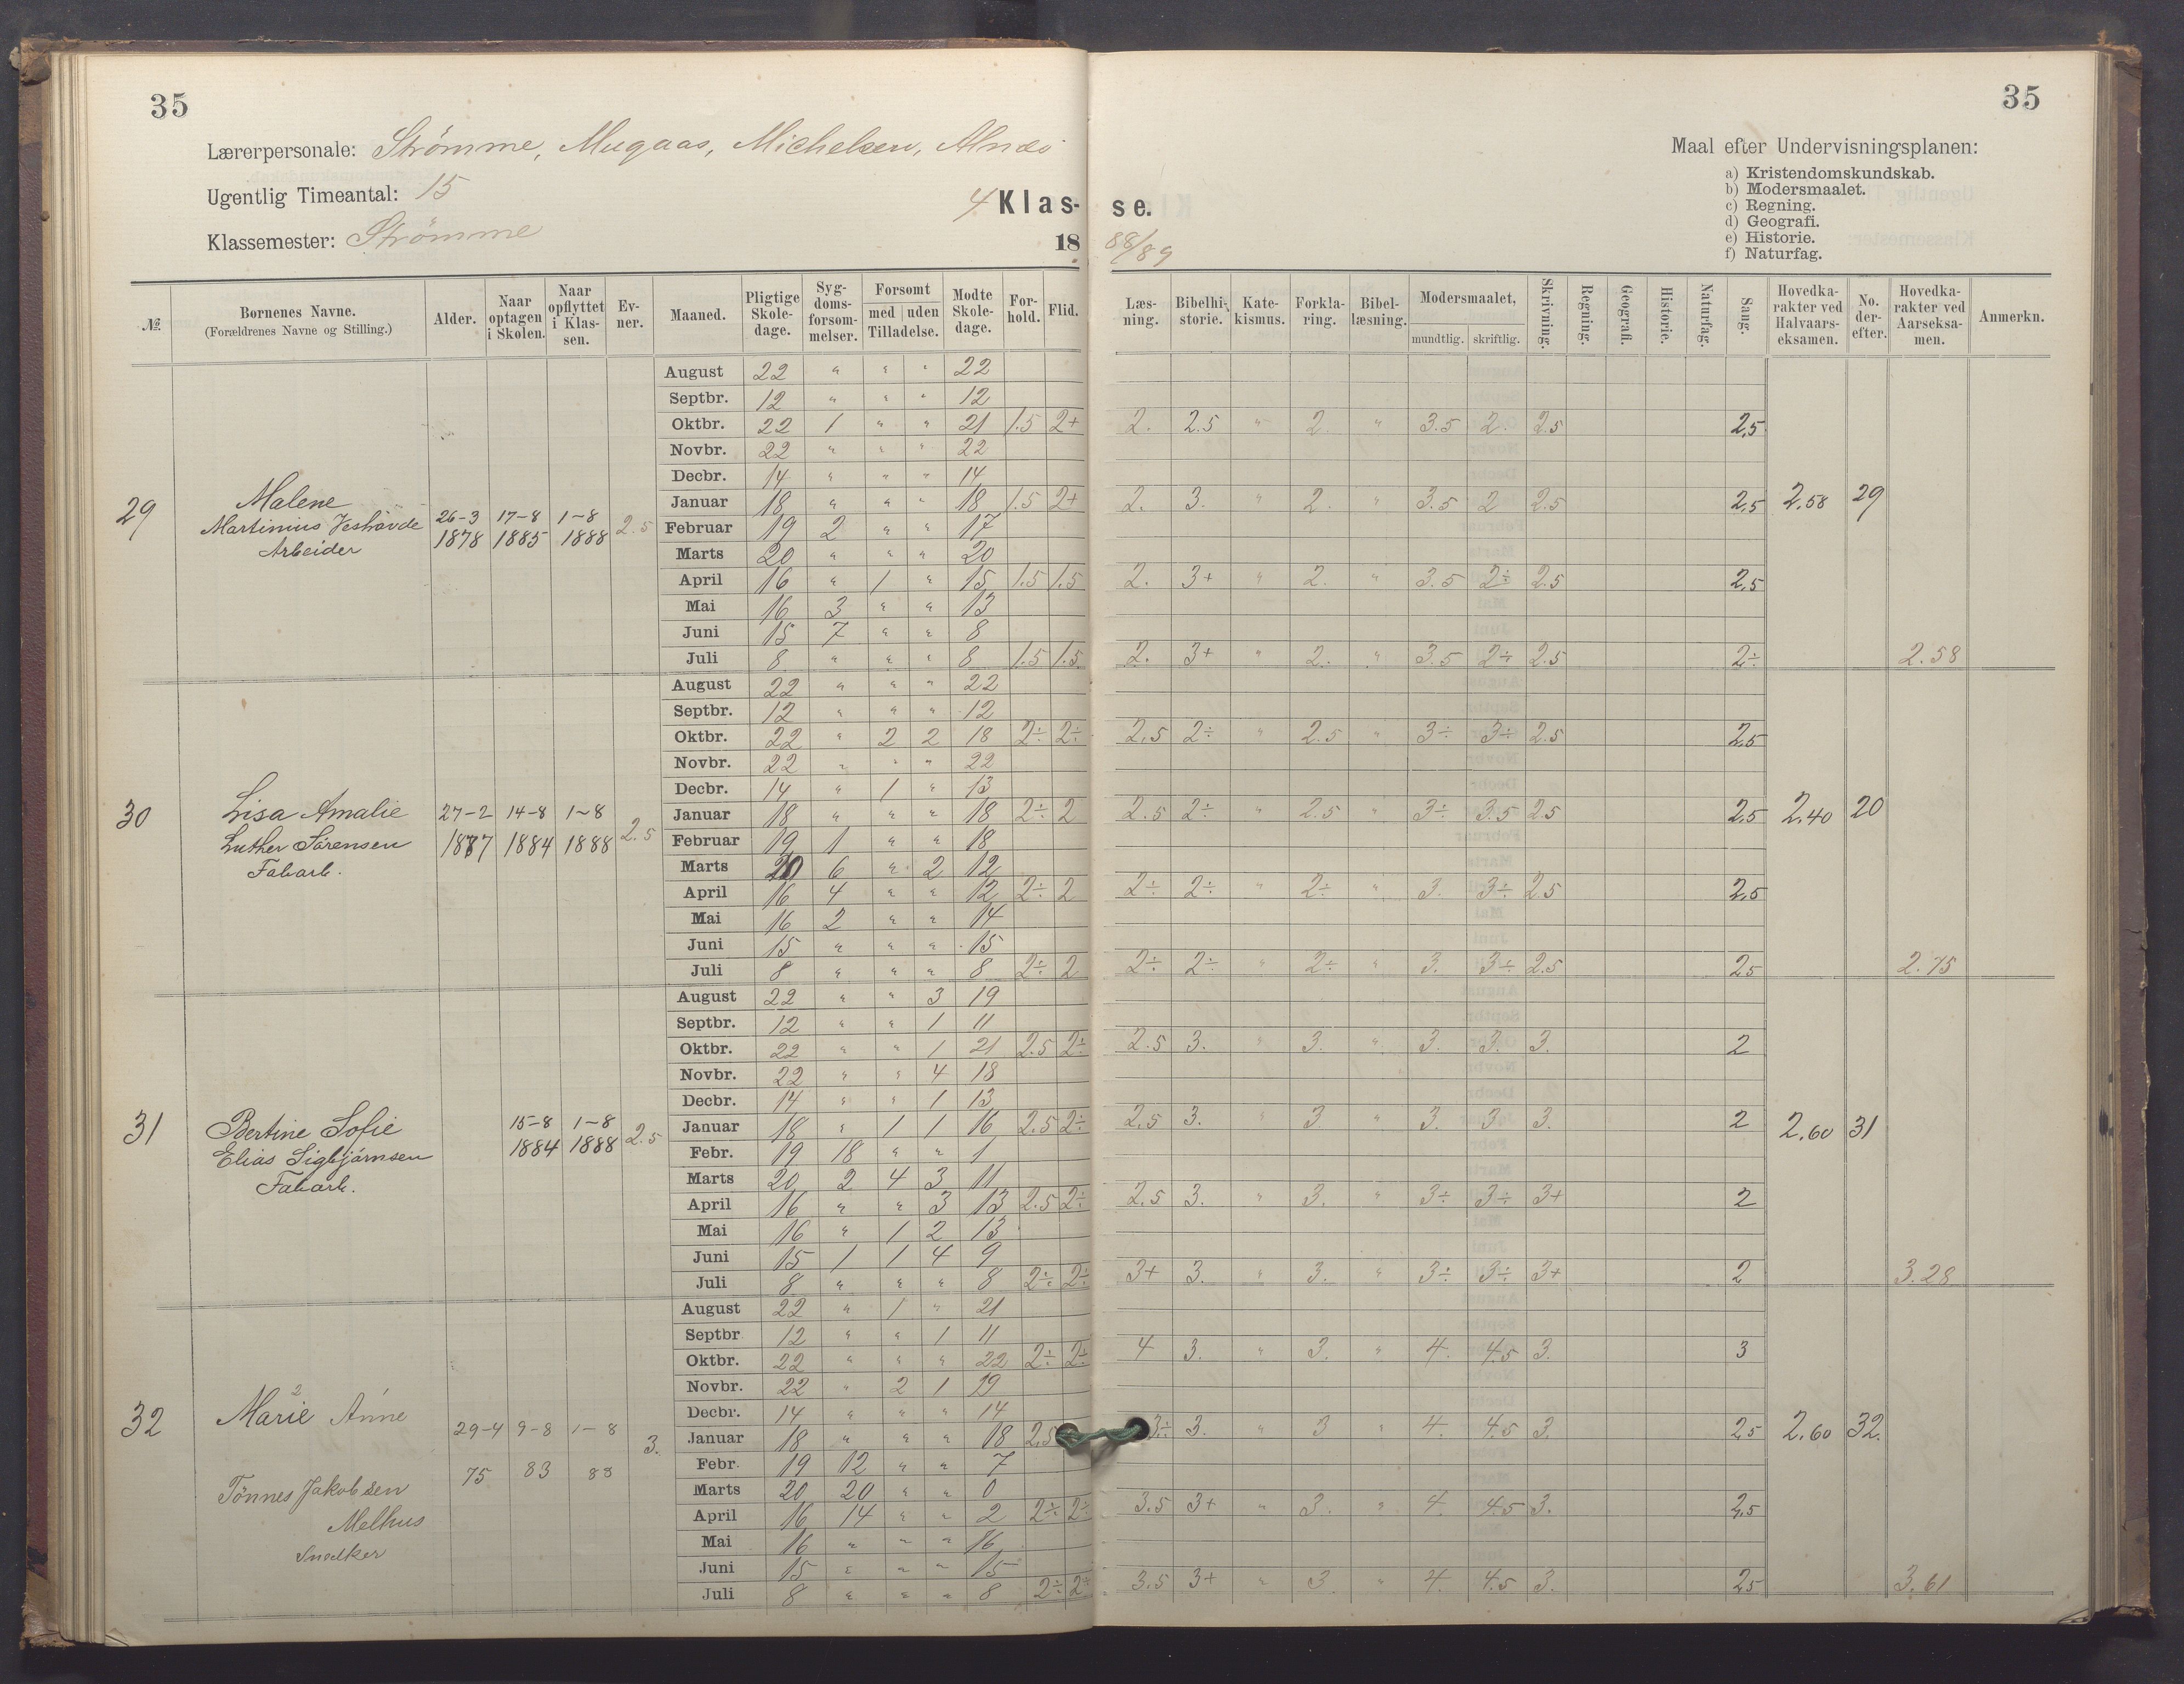 35
35
Lærerpersonale: Strømme, Mugaas, Michelsen, Alnæs
Ugentlig Timeantal: 15
Klassemester: Strømme
4 Klas- se.
18 88/89
Maal efter Undervisningsplanen:
a) Kristendomskundskab.
b) Modersmaalet.
c) Regning.
d) Geografi.
e) Historie.
f) Naturfag.
№ Børnenes Navne. (Forældrenes Navne og Stilling.) Alder. Naar optagen i Skolen. Naar opflyttet i Klassen. Evner. Maaned. Pligtige Skoledage. Sygdomsforsømmelser. Forsømt med uden Tilladelse. Mødte Skoledage. Forhold. Flid. Læsning. Bibelhistorie. Katekismus. Forklaring. Bibellæsning. Modersmaalet, mundtlig. skriftlig. Skrivning. Regning. Geografi. Historie. Naturfag. Sang. Hovedkarakter ved Halvaarseksamen. No. derefter. Hovedkarakter ved Aarseksamen. Anmerkn.
29
Malene
Martinius
Arbeider
26-3 1878 17-8 1885 1-8 1888 2.5
August 22 " " " 22
Septbr. 12 " " " 12
Oktbr. 22 1 " " 21 1.5 2+ 2. 2.5 " 2. " 3.5 2. 2.5 2,5
Novbr. 22 " " " 22
Decbr. 14 " " " 14
Januar 18 " " " 18 1.5 2+ 2. 3. " 2. " 3.5 2 2.5 2,5 2,58 29
Februar 19 2 " " 17
Marts 20 " " " 20
April 16 " 1 " 15 1.5 1.5 2. 3+ " 2. " 3.5 2÷ 2.5 2,5
Mai 16 3 " " 13
Juni 15 7 " " 8
Juli 8 " " " 8 1.5 1.5 2. 3+ " 2. " 3.5 2÷ 2.5 2÷ 2.58
30
Lisa Amalie
Luther Sørensen
Fabarb.
27-2 1877 14-8 1884 1-8 1888 2.5
August 22 " " " 22
Septbr. 12 " " " 12
Oktbr. 22 " 2 2 18 2÷ 2÷ 2.5 2÷ " 2.5 " 3÷ 3÷ 2.5 2,5
Novbr. 22 " " " 22
Decbr. 14 " 1 " 13
Januar 18 " " " 18 2÷ 2 2.5 2÷ " 2.5 " 3÷ 3.5 2.5 2,5 2,40 20
Februar 19 1 " " 18
Marts 20 6 " 2 12
April 16 4 " " 12 2÷ 2 2÷ 2÷ " 2÷ " 3. 3÷ 2.5 2,5
Mai 16 2 " " 14
Juni 15 " " " 15
Juli 8 " " " 8 2÷ 2 2÷ 2÷ " 2÷ " 3. 3÷ 2.5 2,5 2.75
31
Bertine Sofie
Elias Sigbjørnsen
Fabarb.
15-8 1884 1-8 1888 2.5
August 22 " " 3 19
Septbr. 12 " " 1 11
Oktbr. 22 " " 1 21 2.5 2÷ 2.5 3. " 3. " 3. 3. 3. 2
Novbr. 22 " " 4 18
Decbr. 14 " " 1 13
Januar 18 " 1 1 16 2.5 2÷ 2.5 3. " 3. " 3. 3. 3. 2 2,60 31
Febr. 19 18 " " 1
Marts 20 2 4 3 11
April 16 " " 3 13 2.5 2÷ 2.5 3. " 3. " 3÷ 3÷ 3+ 2
Mai 16 " 1 2 13
Juni 15 1 1 4 9
Juli 8 " " " 8 2÷ 2÷ 3+ 3. " 3. " 3÷ 3÷ 3+ 2 3.28
32
2
Marie Anne
Tønnes Jakobsen
Melhus
Snedker
29-4 75 9-8 83 1-8 88 3.
August 22 " 1 " 21
Septbr 12 " " 1 11
Oktbr. 22 " " " 22 2÷ 2÷ 4 3. " 3. " 4. 4.5 3. 3
Novbr. 22 " 2 1 19
Decbr. 14 " " " 14
Januar 18 " " " 18 2.5 3÷ 3. " 3 " 4. 4.5 3. 2,5 2,60 32.
Febr. 19 12 " " 7
Marts 20 20 " " 0
April 16 14 " " 2 2÷ 2÷ 3.5 3+ " 3. " 4. 4.5 3. 2,5
Mai 16 " " " 16
Juni 15 " " " 15
Juli 8 " " " 8 2÷ 2÷ 3.5 3+ " 3. " 4. 4.5 3. 2,5 3.61